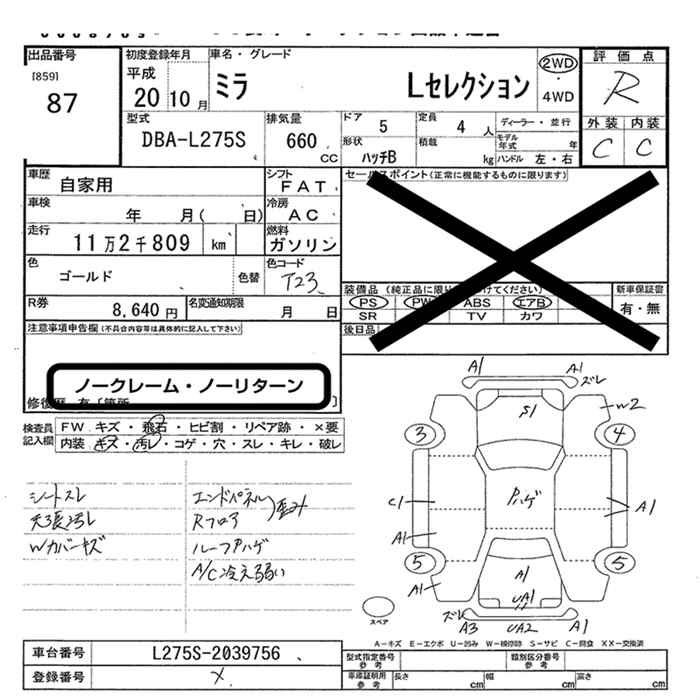 出品番号
[859]
87
初度登録年月
平成
20 10 月
車名・グレード
ミラ Lセレクション
2WD
・
4WD
評価点
R
外装 内装
C C
型式
DBA-L275S
排気量
660
CC
ドア
5
定員
4 人
ディーラー・並行
モデル
年式 年
形状
ハッチB
積載
kg
ハンドル 左・右
車歴
自家用
シフト
FAT
車検
年 月( 日)
冷房
AC
走行
11万2千809 km
燃料
ガソリン
色
ゴールド
色替
色コード
T23
R券
8,640 円
名変通知期限
月 日
セールスポイント(正常に機能するものに限ります)
装備品
PS PW ABS エアB
SR TV カワ
新車保証書
有・無
後日品
注意事項申告欄(不具合内容等は具体的に記入して下さい)
ノークレーム・ノーリターン
検査員
記入欄
FW キズ・飛石・ヒビ割・リペア跡・×要
内装 キズ・汚レ・コゲ・穴・スレ・キレ・破レ
シートスレ
天張汚レ
Wカバーキズ
エンドパネル
Rフロア
歪み
ルーフPハゲ
A/C冷え弱い
A1 A1 ズレ
S1
W2
3 4
C1 Pハゲ A1
A1
5 5
A1
A1
UA1
ズレ
A3 UA2 A1
スペア
A-キズ E-エクボ U-凹み W-補修跡 S-サビ C-腐食 XX-交換済
車台番号
L275S-2039756
登録番号
×
型式指定番号
参考
類別区分番号
参考
車庫証明用
参考
長さ cm
幅 cm
高さ cm